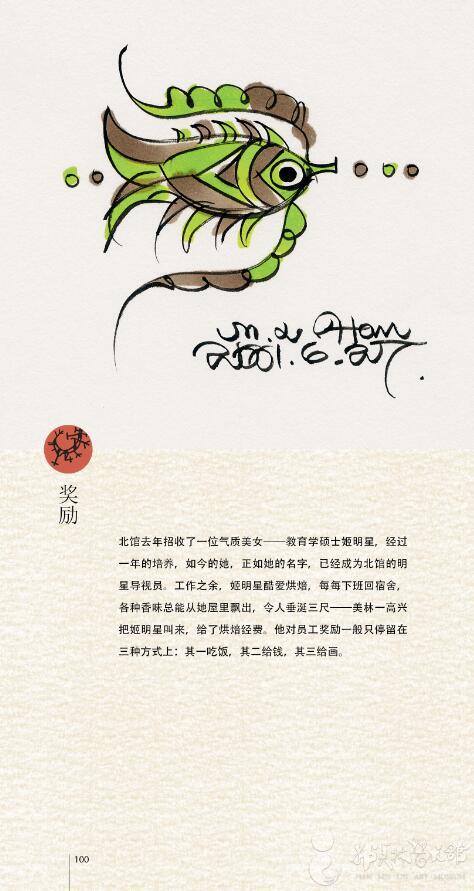 m.l Han
2001.6.27.
奖励
北馆去年招收了一位气质美女——教育学硕士姬明星，经过
一年的培养，如今的她，正如她的名字，已经成为北馆的明
星导视员。工作之余，姬明星酷爱烘焙，每每下班回宿舍，
各种香味总能从她屋里飘出，令人垂涎三尺——美林一高兴
把姬明星叫来，给了烘焙经费。他对员工奖励一般只停留在
三种方式上：其一吃饭，其二给钱，其三给画。
100
HAN MEI LIN ART MUSEUM